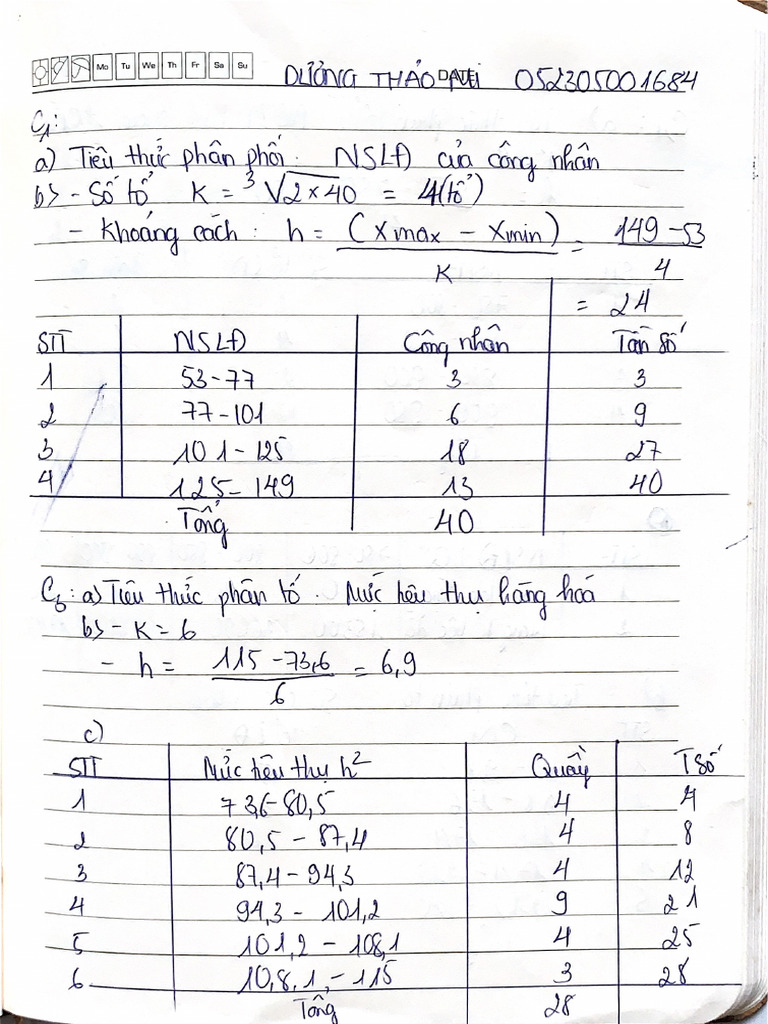 Mo Tu We Th Fr Sa Su
DƯƠNG THẢO 052305001684
C1:
a) Tiêu thức phân phối. NSLĐ của công nhân
b> - Số tổ K = ³√2×40 = 4(tổ)
- Khoảng cách: h = (Xmax - Xmin) / K = 149-53 / 4
= 24
STT NSLĐ Công nhân Tần số
1 53-77 3 3
2 77-101 6 9
3 101-125 18 27
4 125-149 13 40
Tổng 40
C3: a) Tiêu thức phân tổ. Mức tiêu thụ hàng hoá
b> - K = 6
- h = 115 - 73,6 / 6 = 6,9
c)
STT Mức tiêu thụ h² Quầy T số
1 73,6-80,5 4 4
2 80,5 - 87,4 4 8
3 87,4-94,3 4 12
4 94,3 - 101,2 9 21
5 101,2 - 108,1 4 25
6 10,8,1,-115 3 28
Tổng 28